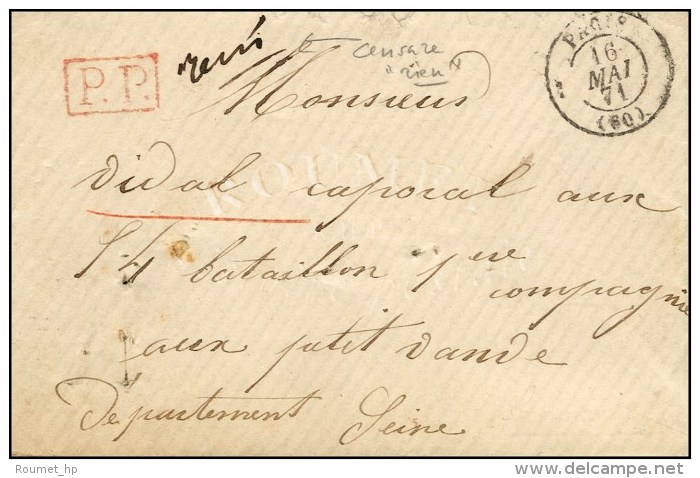 PARIS
16
MAI
71
(60)
P.P.
censure
"rien"
Monsieur
vidal caporal aux
14 bataillon 1ere
compagnie
aux petit vande
Departement Seine
ROUMET
Roumet_hp
delcampe.net